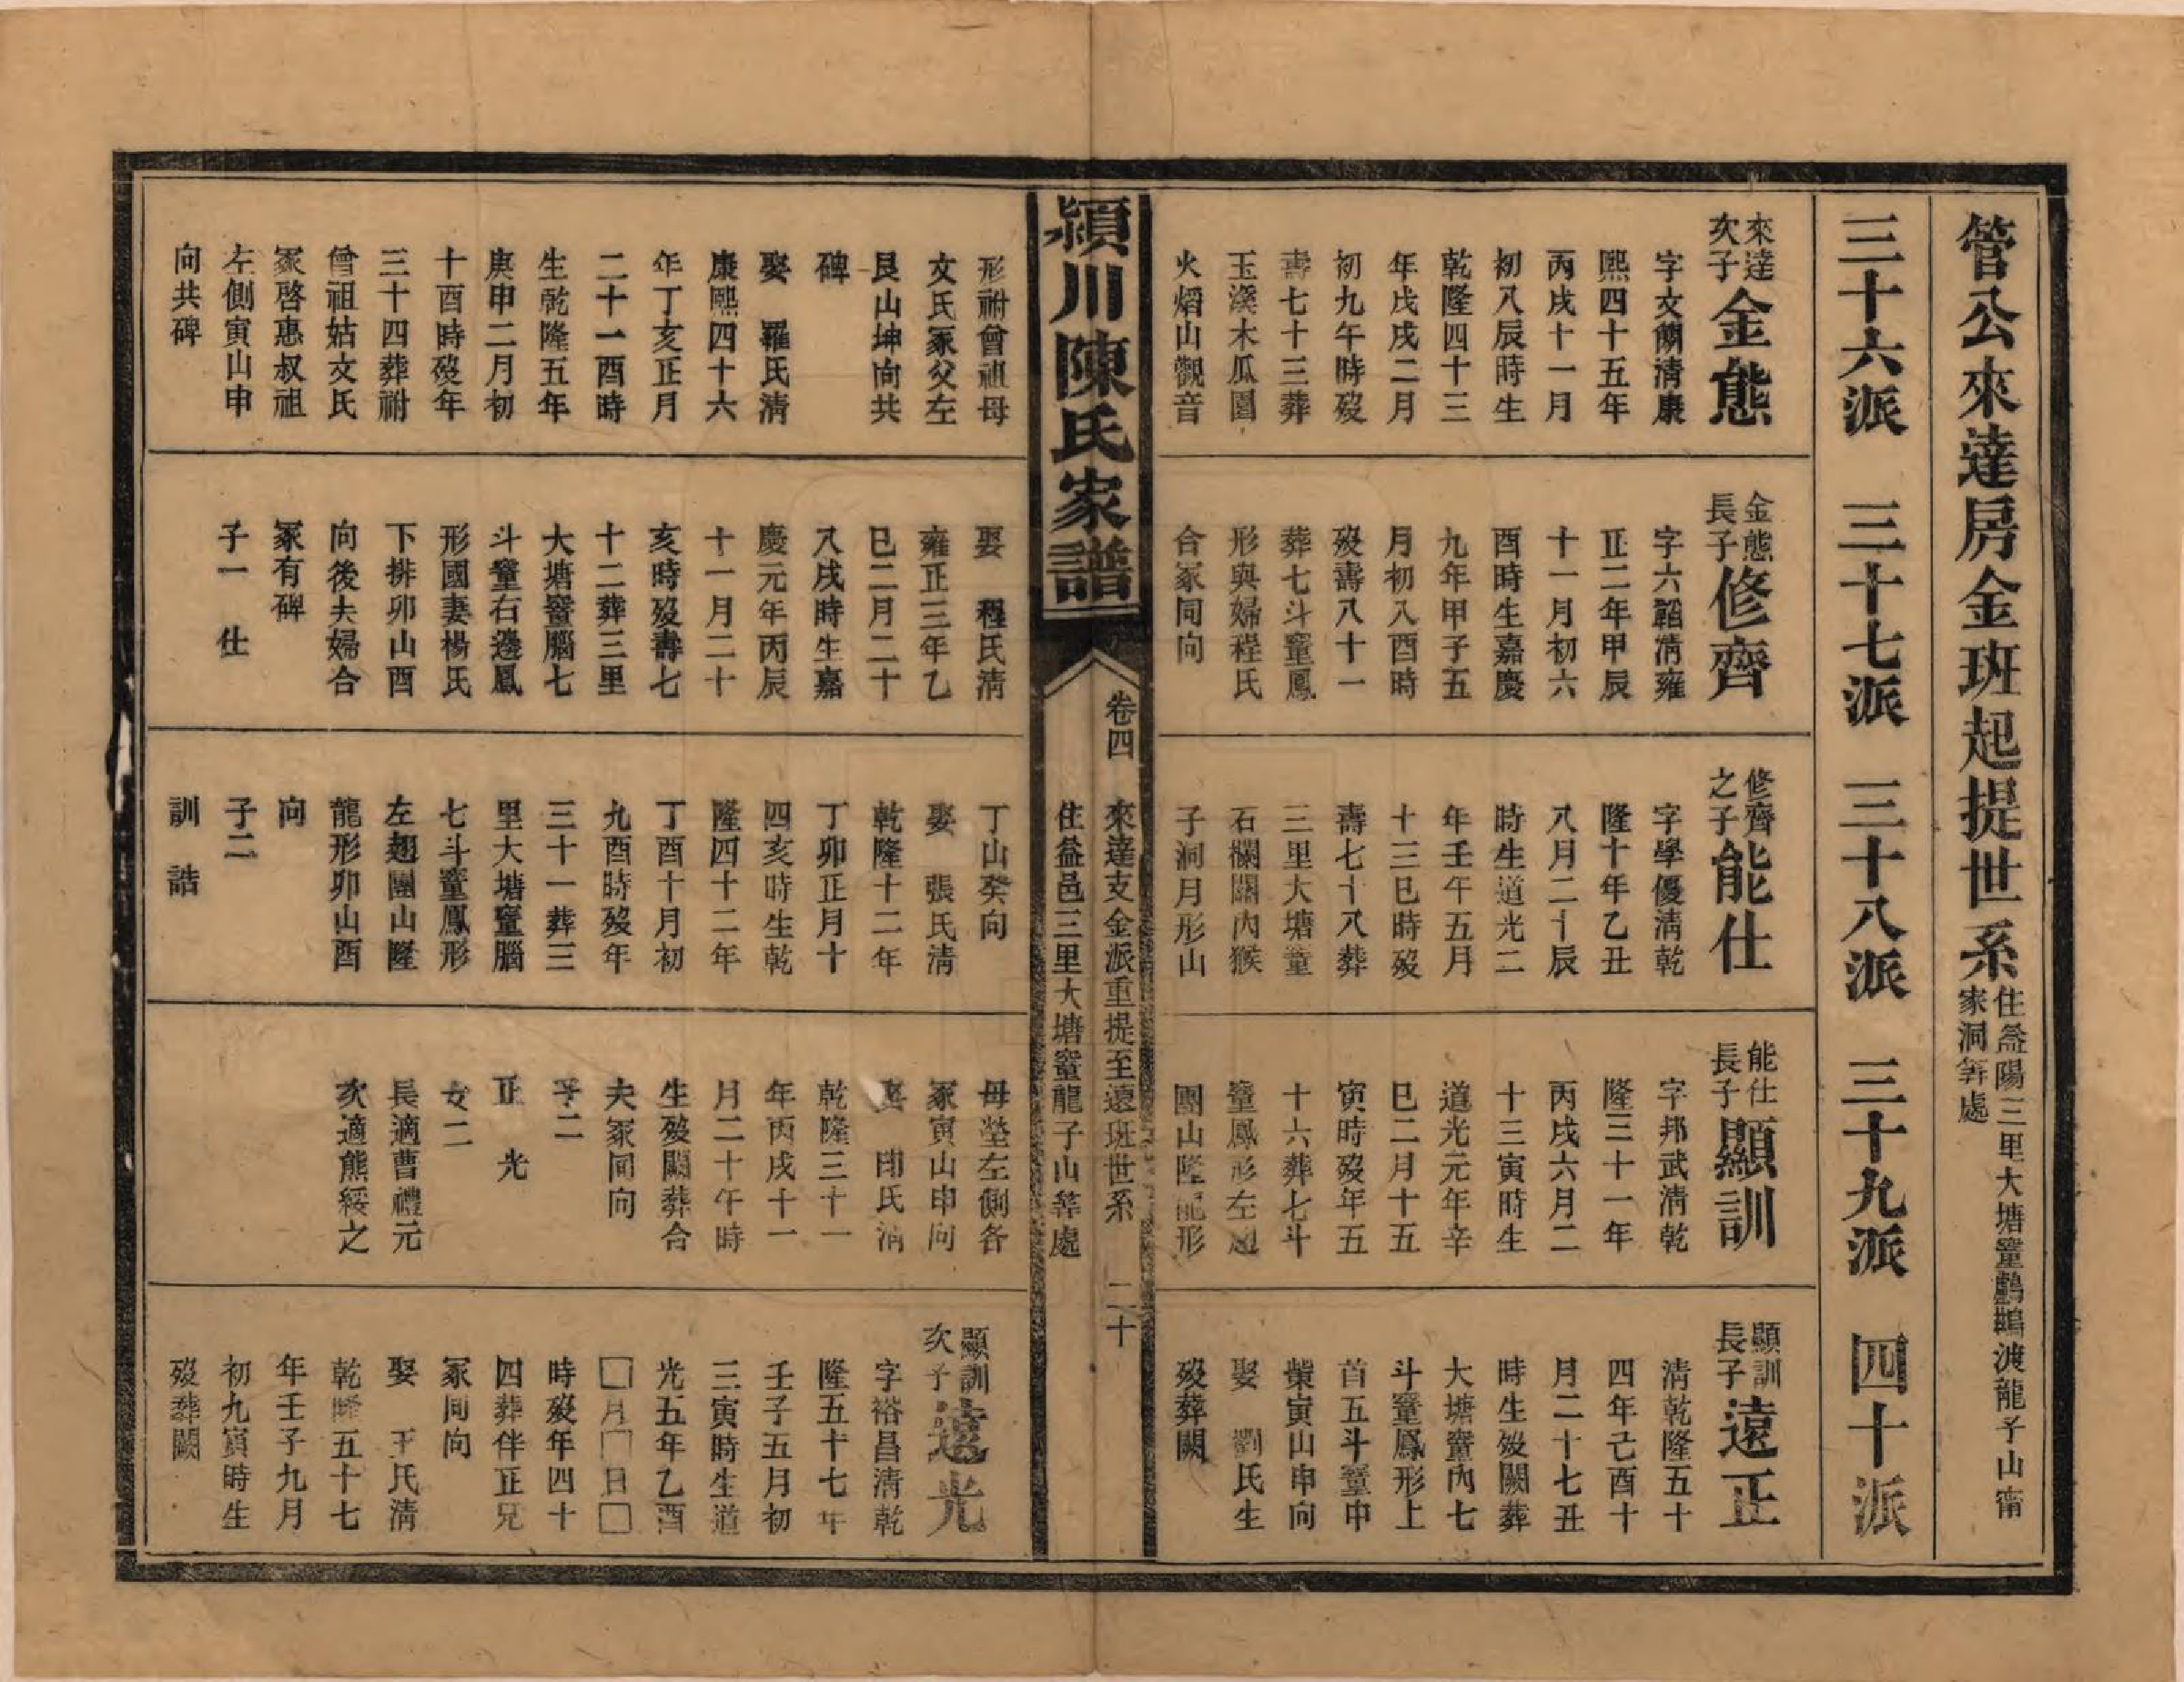 管公來達房金班起提世系
住益陽三里大塘𥧌鸕鷀渡龍子山甯
家洞等處
三十六派 三十七派 三十八派 三十九派 四十派
來達
次子
金態
字文關清康
熙四十五年
丙戌十一月
初八辰時生
乾隆四十三
年戊戌二月
初九午時歿
壽七十三葬
玉溪木瓜園
火熖山觀音
形祔曾祖母
文氏冢父左
艮山坤向共
碑
娶 羅氏清
康熙四十六
年丁亥正月
二十一酉時
生乾隆五年
庚申二月初
十酉時歿年
三十四葬祔
曾祖姑文氏
冢啓惠叔祖
左側寅山申
向共碑
金態
長子
修齊
字六韜清雍
正二年甲辰
十一月初六
酉時生嘉慶
九年甲子五
月初入酉時
歿壽八十一
葬七斗𥧌鳳
形與婦程氏
合冢同向
娶 程氏清
雍正三年乙
巳二月二十
八戌時生嘉
慶元年丙辰
十一月二十
亥時歿壽七
十二葬三里
大塘𥧌腦七
斗𥧌右邊鳳
形國妻楊氏
下排卯山酉
向後夫婦合
冢有碑
子一 仕
修齊
之子
能仕
字學優清乾
隆十年乙丑
八月二十辰
時生道光二
年壬午五月
十三巳時歿
壽七十八葬
三里大塘𥧌
石欄關內猴
子洞月形山
丁山癸向
娶 張氏清
乾隆十二年
丁卯正月十
四亥時生乾
隆四十二年
丁酉十月初
九酉時歿年
三十一葬三
里大塘𥧌腦
七斗𥧌鳳形
左翅團山隆
龍形卯山酉
向
子二
訓 誥
能仕
長子
顯訓
字邦武清乾
隆三十一年
丙戌六月二
十三寅時生
道光元年辛
巳二月十五
寅時歿年五
十六葬七斗
𥧌鳳形左翅
團山隆龍形
母塋左側各
冢寅山申向
娶 印氏清
乾隆三十一
年丙戌十一
月二十午時
生歿闕葬合
夫冢同向
子二
正 光
女二
長適曹禮元
次適熊綏之
顯訓
長子
遠正
清乾隆五十
四年己酉十
月二十七丑
時生歿闕葬
大塘𥧌內七
斗𥧌鳳形上
首五斗𥧌中
㙡寅山申向
娶 劉氏生
歿葬闕
顯訓
次子
遠光
字裕昌清乾
隆五十七年
壬子五月初
三寅時生道
光五年乙酉
□月□日□
時歿年四十
四葬伴正兄
冢同向
娶 王氏清
乾隆五十七
年壬子九月
初九寅時生
歿葬闕
潁川陳氏家譜
卷四
來達支金派重提至遠班世系
住益邑三里大塘𥧌龍子山等處
二十